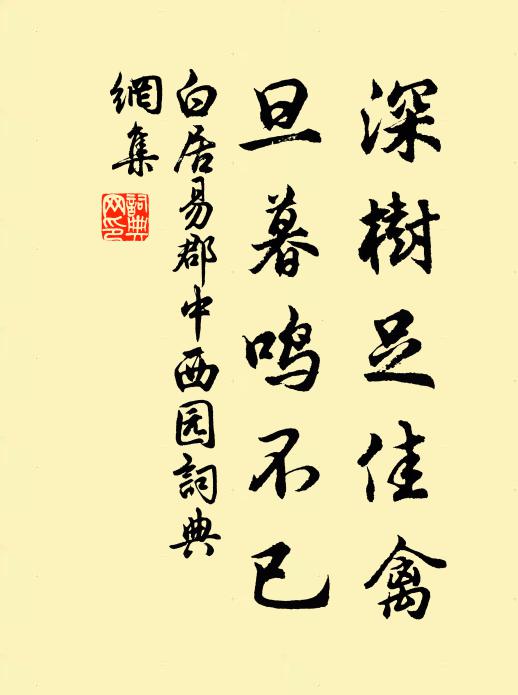 深樹足佳禽
旦暮鸣不已
白居易郡中西园詞典
網集
詞典
网印